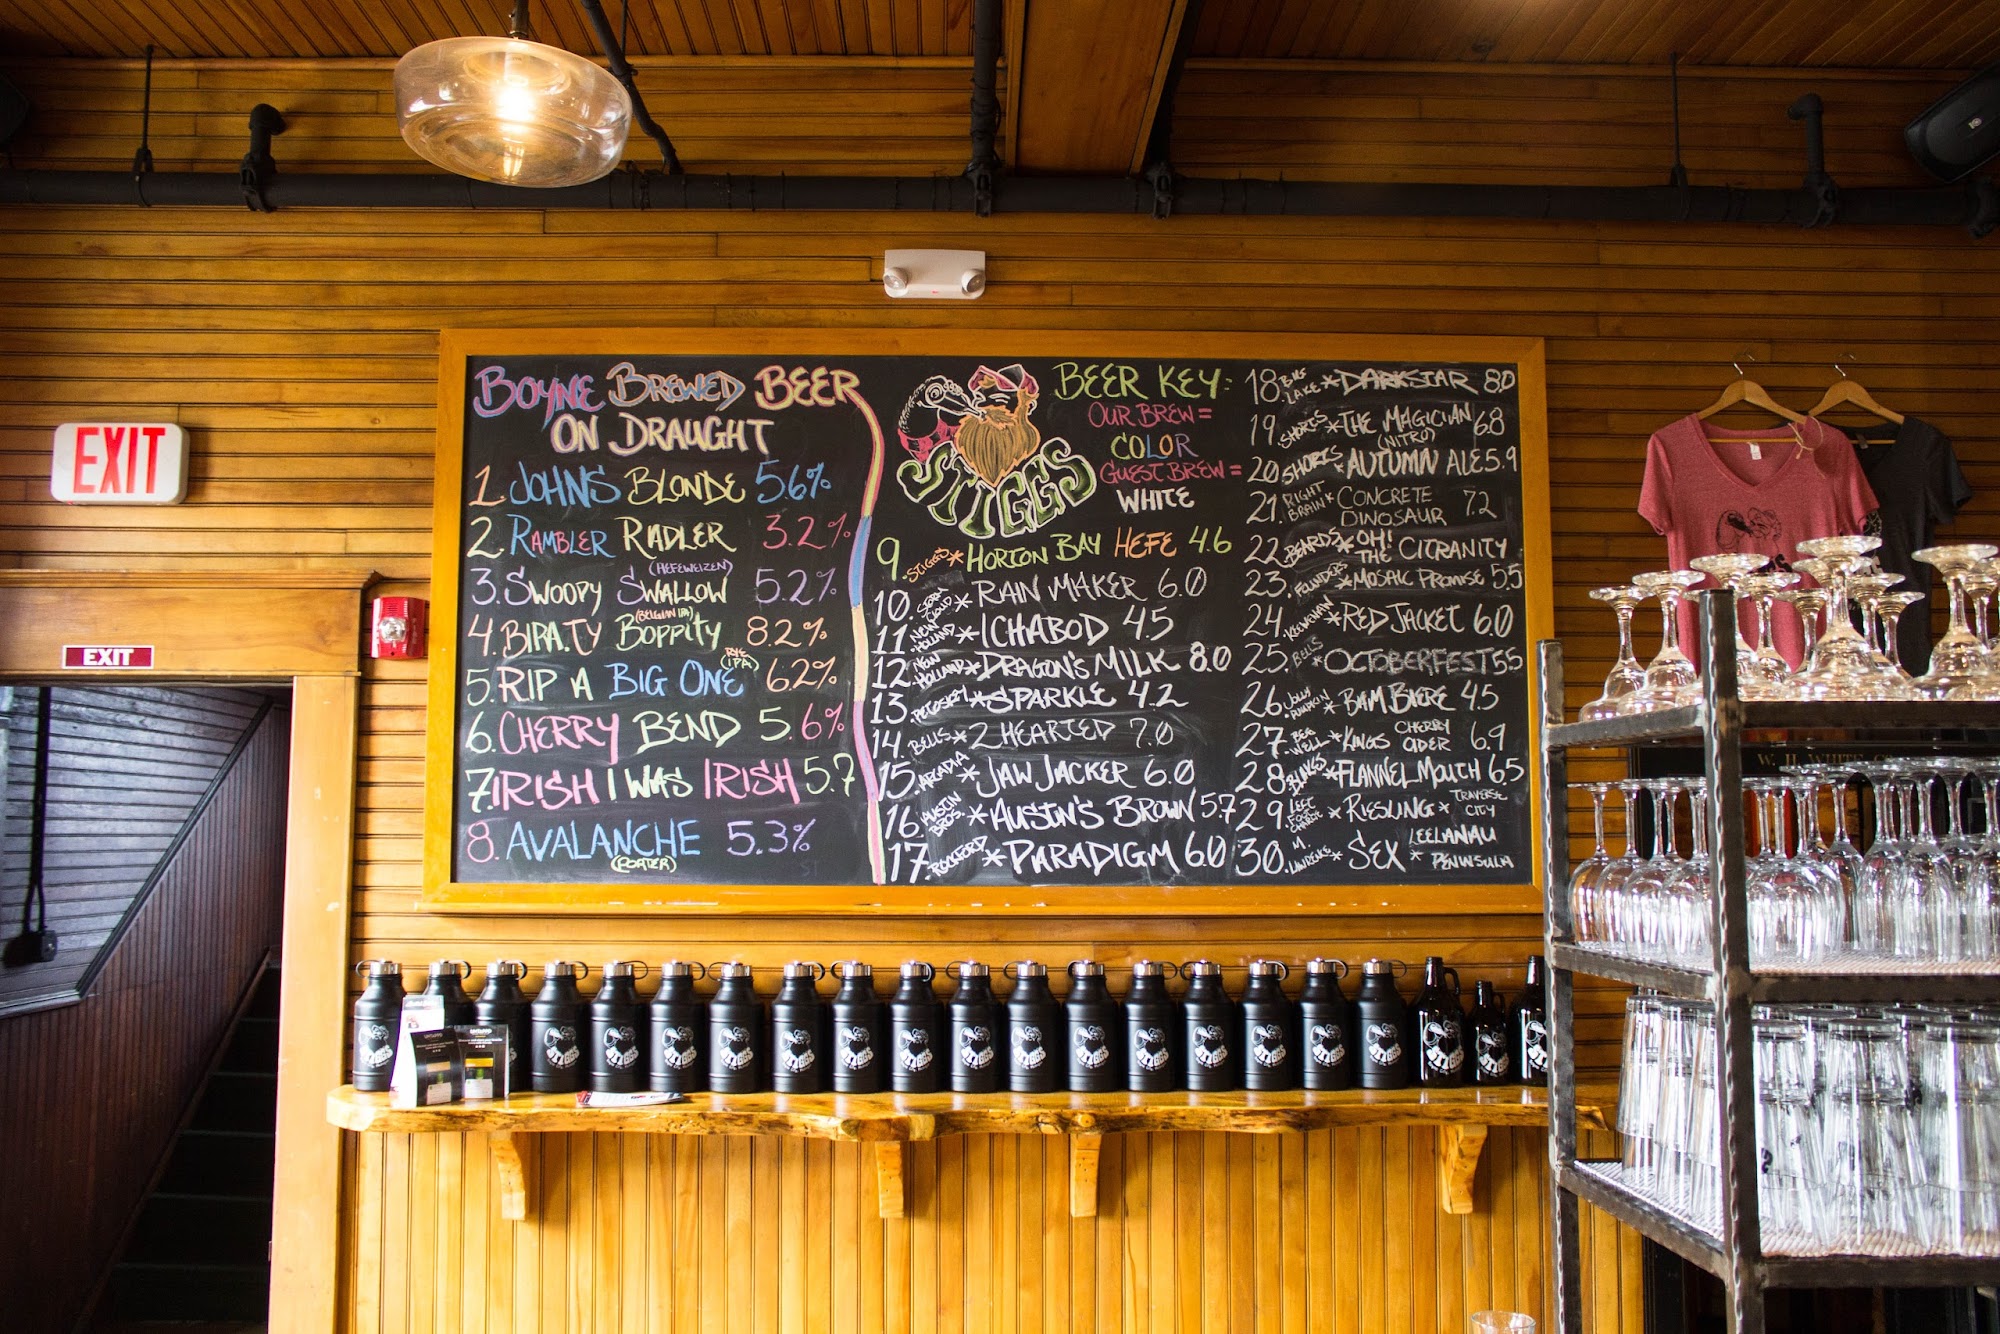 EXIT
EXIT
BOYNE BREWED BEER
ON DRAUGHT
1. JOHN'S BLONDE 5.6%
2. RAMBLER RADLER 3.2%
(HEFEWEIZEN)
3. SWOOPY SWALLOW 5.2%
(BELGIAN IPA)
4. BIPA.TY BOPPITY 8.2%
5. RIP A BIG ONE (RYE IPA) 6.2%
6. CHERRY BEND 5.6%
7. IRISH I WAS IRISH 5.7
8. AVALANCHE 5.3%
(PORTER)
STIGGS
BEER KEY:
OUR BREW =
COLOR
GUEST BREW =
WHITE
9. STIGGS * HORTON BAY HEFE 4.6
10. STORM CLOUD * RAIN MAKER 6.0
11. NEW HOLLAND * ICHABOD 4.5
12. NEW HOLLAND * DRAGON'S MILK 8.0
13. PETOSKEY * SPARKLE 4.2
14. BELLS * 2 HEARTED 7.0
15. ARCADIA * JAW JACKER 6.0
16. AUSTIN BROS. * AUSTIN'S BROWN 5.7
17. ROCKFORD * PARADIGM 6.0
18. LAKE * DARKSTAR 8.0
19. SHORTS * THE MAGICIAN 6.8
(NITRO)
20. SHORTS * AUTUMN ALE 5.9
21. RIGHT BRAIN * CONCRETE DINOSAUR 7.2
22. BEARDS * OH! THE CITRANITY
23. FOUNDERS * MOSAIC PROMISE 5.5
24. KEWEENAW * RED JACKET 6.0
25. BELLS * OCTOBERFEST 5.5
26. JOLLY PUMPKIN * BAM BIERE 4.5
27. BEE WELL * KINGS CHERRY CIDER 6.9
28. BLAKES * FLANNEL MOUTH 6.5
29. LEFT FOOT CHARLEY * RIESLING * TRAVERSE CITY
30. M. LAWRENCE * SEX * LEELANAU PENINSULA
STIGGS